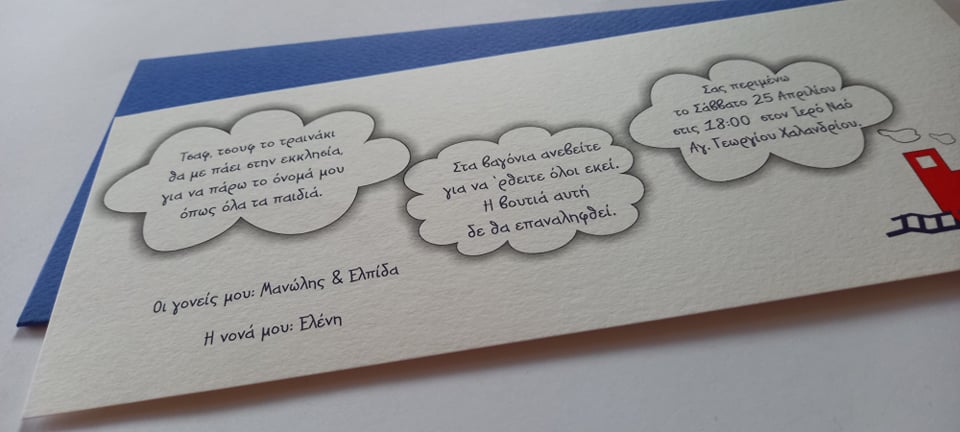 Τσαφ, τσουφ το τραινάκι
θα με πάει στην εκκλησία,
για να πάρω το όνομά μου
όπως όλα τα παιδιά.
Στα βαγόνια ανεβείτε
για να 'ρθειτε όλοι εκεί.
Η βουτιά αυτή
δε θα επαναληφθεί.
Σας περιμένω
το Σάββατο 25 Απριλίου
στις 18:00 στον Ιερό Ναό
Αγ. Γεωργίου Χαλανδρίου.
Οι γονείς μου: Μανώλης & Ελπίδα
Η νονά μου: Ελένη